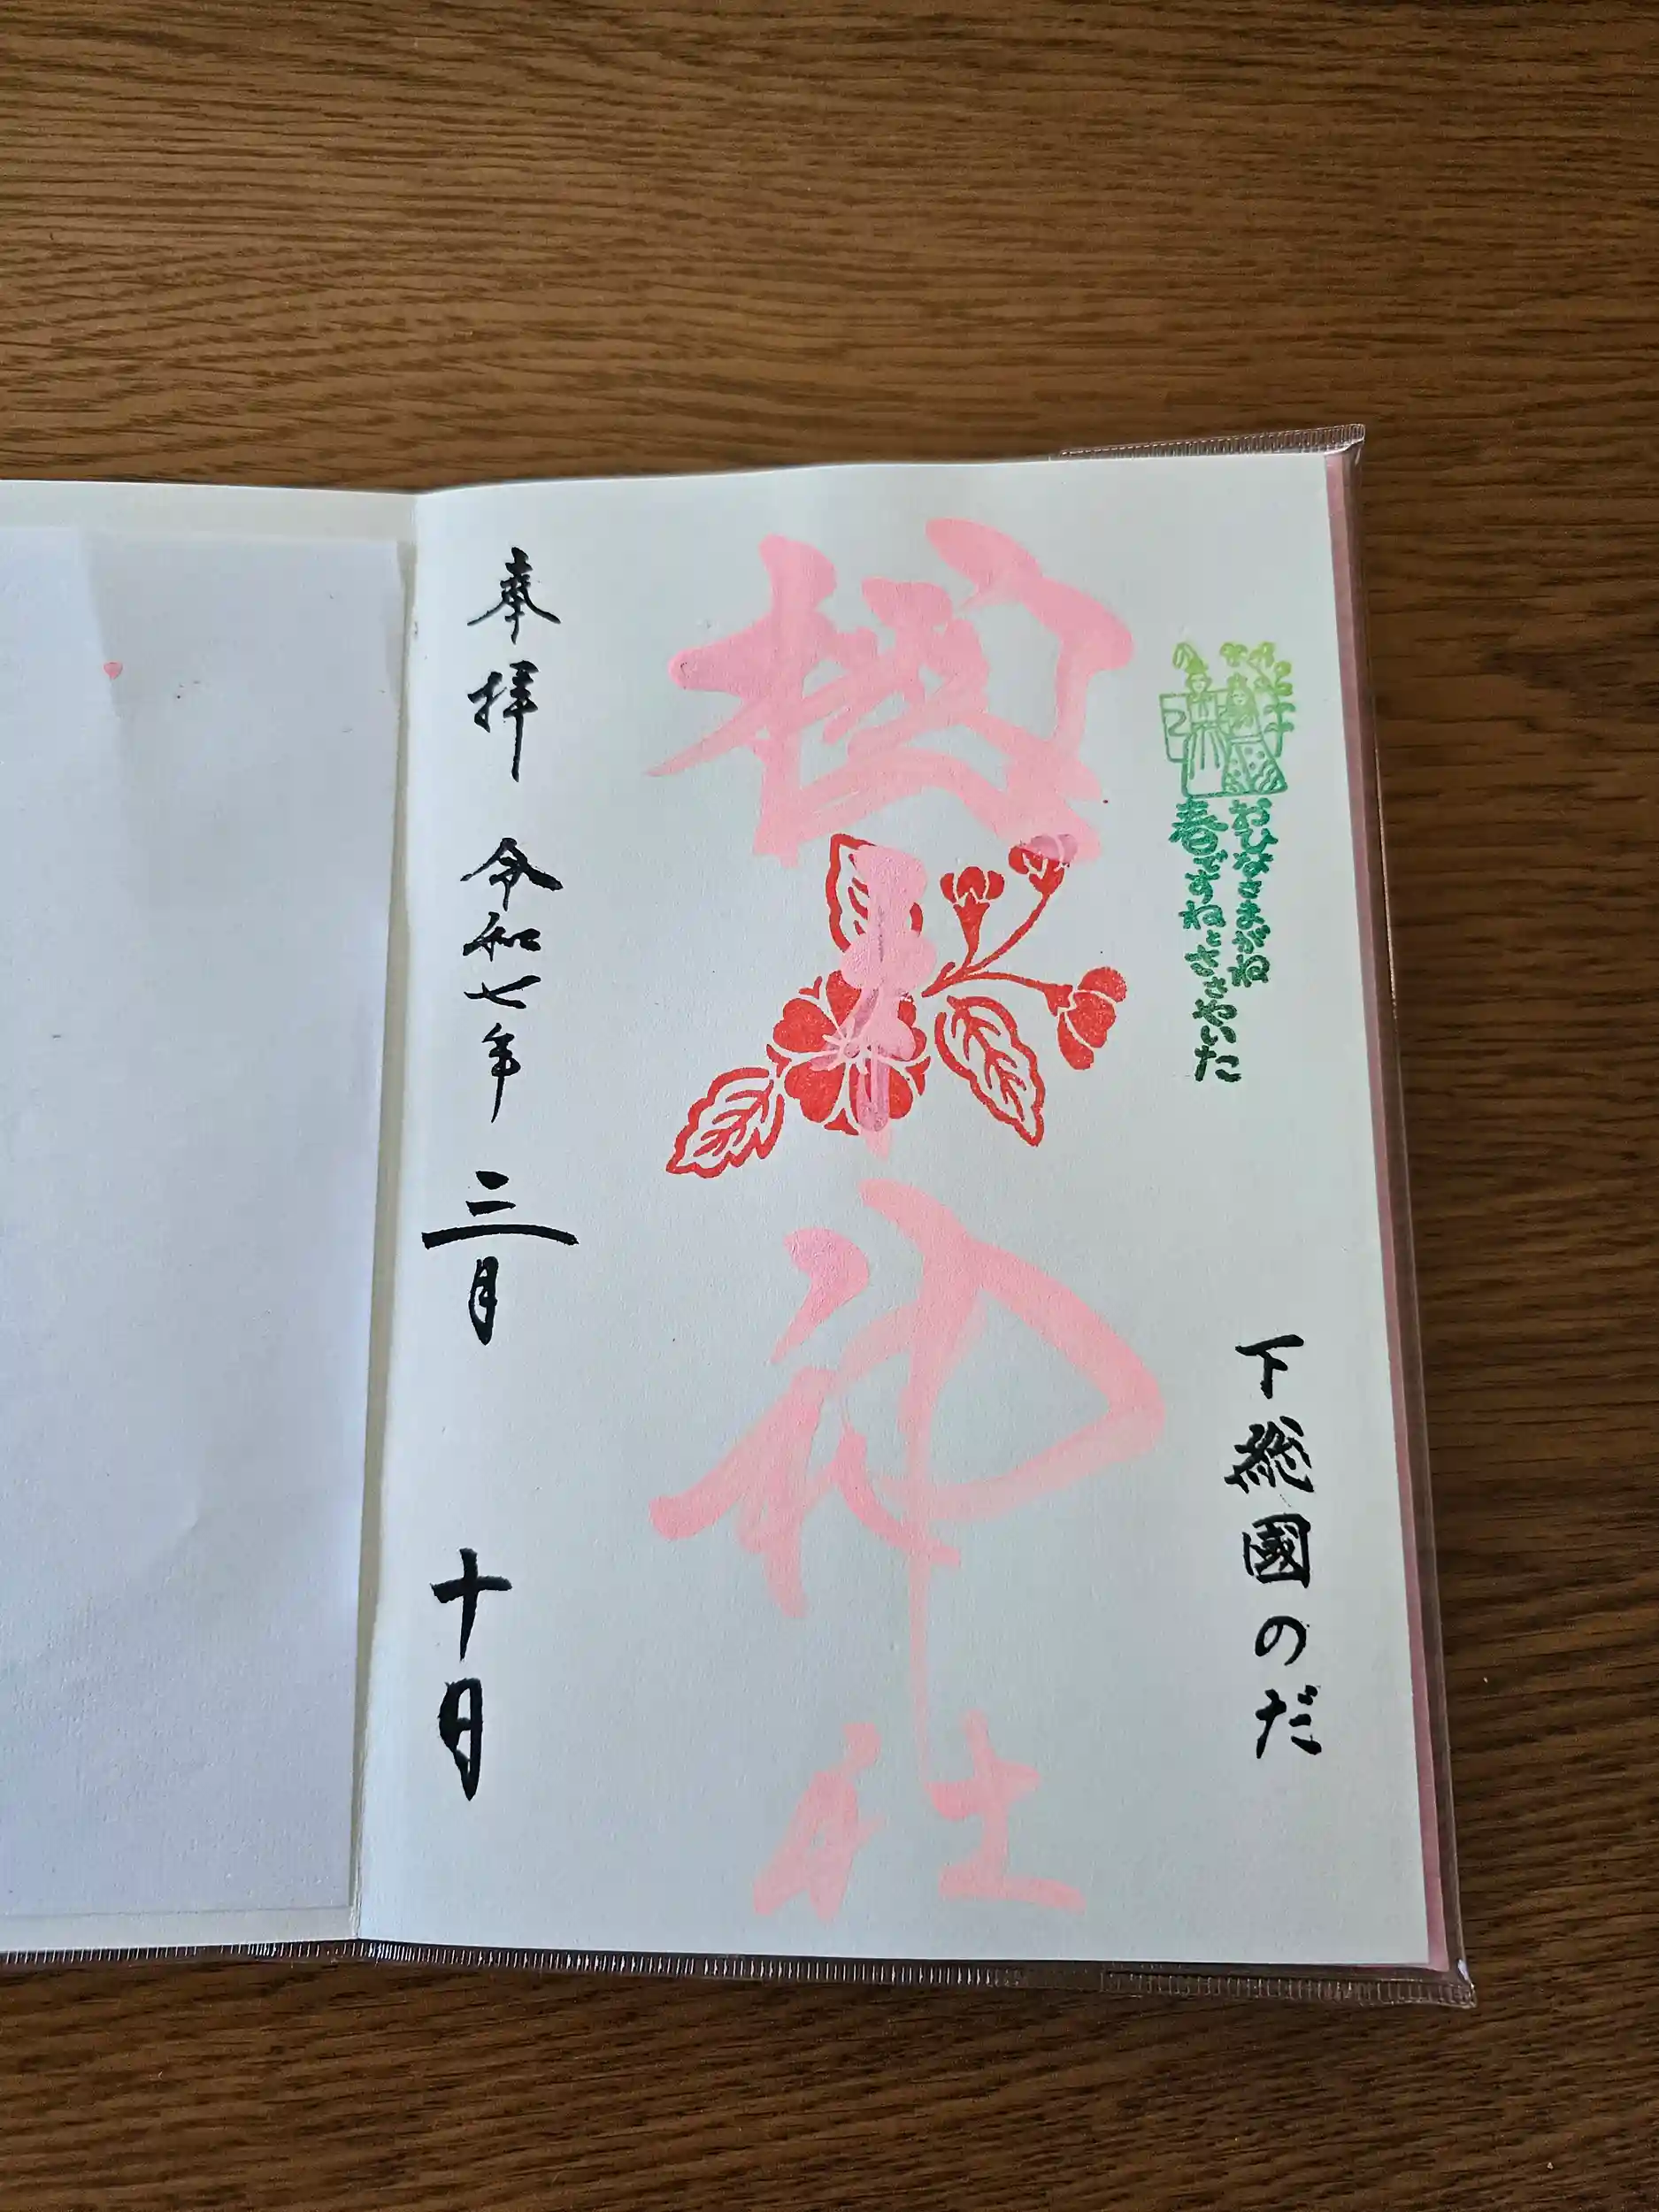 おひなさまがね
春ですねとささやいた
下総國のだ
櫻木神社
奉拝 令和七年 三月 十日